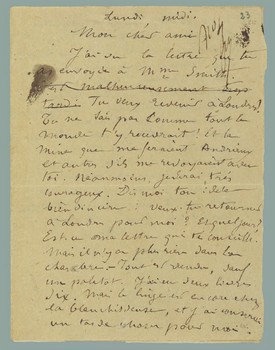 Lundi midi.
Mon cher ami
J'ai vu la lettre que tu
envoyée à Mme Smith.
est malheureusement trop
tard. Tu veux revenir à Londres!
Tu ne sais pas comme tout le
monde t'y recevrait! Et la
mine que me feraient Andrieu
et autres s'ils me revoyaient avec
toi. Néanmoins, je serai très
courageux. Dis-moi ton idée
bien sincère: veux-tu retourner
à Londres pour moi? Et quel jour?
Est-ce ma lettre qui te conseille.
Mais il n'y a plus rien dans la
chambre. Tout est vendu, sauf
un paletot. J'ai eu deux livres
dix. Mais le linge est encore chez
la blanchisseuse, et j'ai conservé
un tas de choses pour moi.